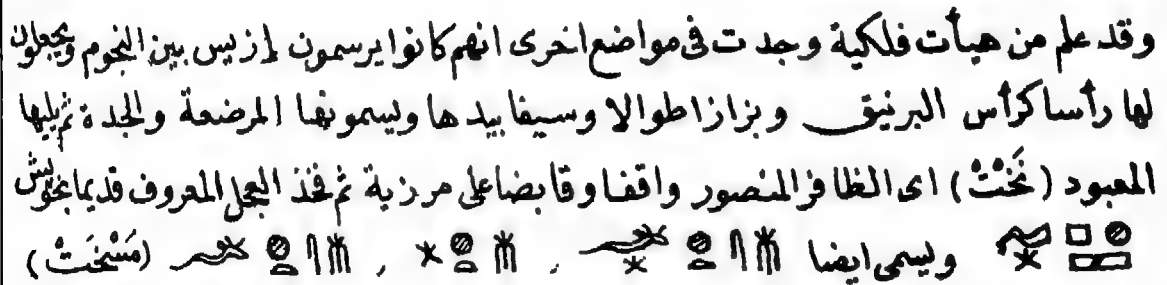 وقد علم من هيأت فلكية وجدت فى مواضع اخرى انهم كانوا يرسمون ازيس بين النجوم ويجعلون
لها رأسا كرأس البرنيق وبزازا طوالا وسيفا بيدها ويسمونها المرضعة والجدة ثم يليها
المعبود (نَخْتْ) اى الظافر المنصور واقفا وقابضا على مرزبة ثم فخذ العجل المعروف قديما
ويسمى ايضا (مَسْخَتْ)